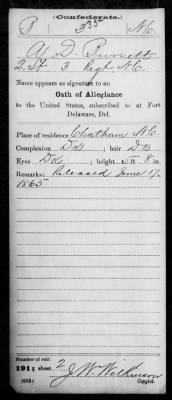 (Confederate.)
B 335 N.C.
A. D. Burnett
2 Lt. 3 Regt N.C.
Name appears as signature to an
Oath of Allegiance
to the United States, subscribed to at Fort
Delaware, Del.
Place of residence Chatham N.C.
Complexion DK; hair DB
Eyes DK; height 5 ft 8 in
Remarks: Released June 17,
1865
Number of roll:
191; sheet 2 J. W. Wilkinson
(669) Copyist.